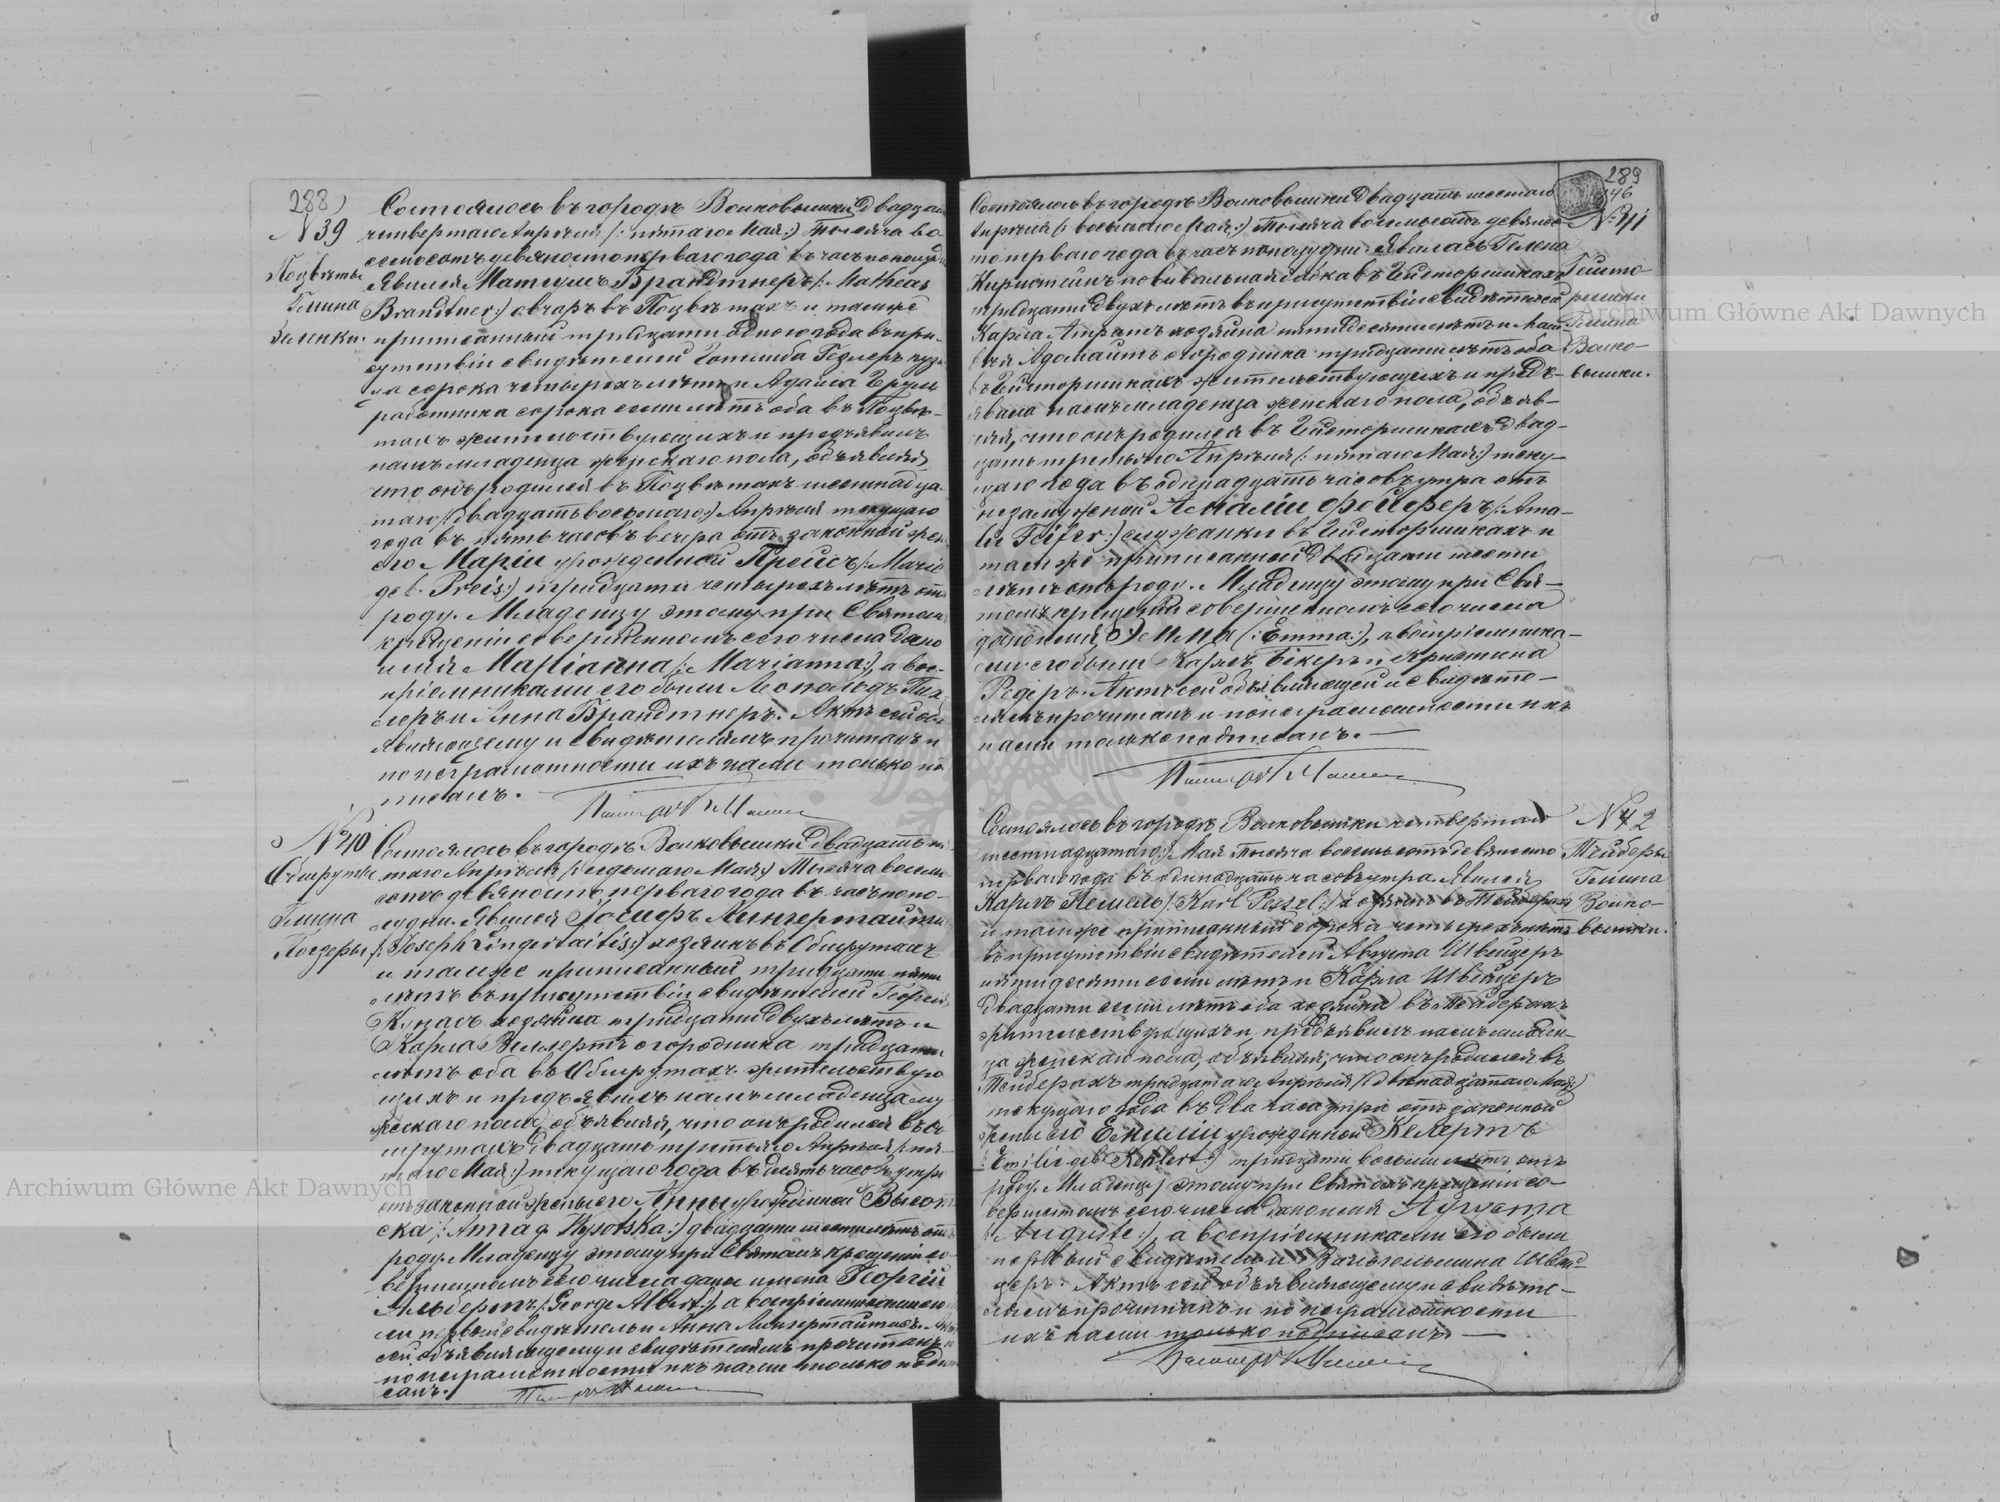 288
N 39
Позвѣты
Гмина
Зеленки.
Состоялось въ городѣ Волковышки двадцать
четвертаго Апрѣля /: пятаго Мая:/ тысяча во-
семьсотъ девяносто перваго года въ часъ пополудни
Явился Матеушъ Брандтнеръ /: Matheas
Brandtner:/ овчаръ въ Позвѣтахъ и тамже
приписанный тридцати одного года въ при-
сутствіи свидѣтелей Готлиба Гезлеръ
сорока четырехъ лѣтъ и Адама
работника сорока семи лѣтъ оба въ Позвѣ-
тахъ жительствующихъ и предъявилъ
намъ младенца женскаго пола, объявляя
что онъ родился въ Позвѣтахъ шестнадца-
таго /: двадцать восьмаго:/ Апрѣля текущаго
года въ пять часовъ вечера отъ законной жены
его Маріи урожденной Прейсъ /: Marie
geb. Preis:/ тридцати четырехъ лѣтъ отъ
роду. Младенцу этому при Святомъ
крещеніи совершенномъ сего числа дано
имя Маріанна /: Marianna:/, а вос-
пріемниками его были Леопольдъ
и Анна Брандтнеръ. Актъ сей объ-
являющему и свидѣтелямъ прочитанъ и
по неграмотности ихъ нами только под-
писанъ.
N 40
Обшруты
Гмина
Поезеры
Состоялось въ городѣ Волковышки двадцать
таго Апрѣля /: седьмаго Мая:/ Тысяча восемь
сотъ девяносто перваго года въ часъ попо-
лудни. Явился Іосифъ Лингертайтисъ
/: Joseph Lingertaitis:/ хозяинъ въ Обшрутахъ
и тамже приписанный тридцати пяти
лѣтъ въ присутствіи свидѣтелей Георгія
хозяина тридцати двухъ лѣтъ и
Карла огородника тридцати
лѣтъ оба въ Обшрутахъ жительствую-
щихъ и предъявилъ намъ младенца му-
жескаго пола, объявляя, что онъ родился въ Об-
шрутахъ двадцать третьяго Апрѣля /: пя-
таго Мая:/ текущаго года въ девять часовъ утра
отъ законной жены его Анны урожденной Высот-
ска /: Anna g Wysotska:/ двадцати шести лѣтъ отъ
роду. Младенцу этому при Святомъ крещеніи со-
вершенномъ сего числа даны имена Георгій
Альбертъ /: George Albert:/, а воспріемниками его
были первый свидѣтель и Анна Лингертайтисъ. Актъ
сей объявляющему и свидѣтелямъ прочитанъ
по неграмотности ихъ нами только подпи-
санъ.
289
146
N 41
Гейсто-
ришки
Гмина
Волко-
вышки.
Состоялось въ городѣ Волковышки двадцать шестаго
Апрѣля /: восьмаго Мая:/ Тысяча восемьсотъ девяно-
сто перваго года въ часъ пополудни. Явилась
повивальная бабка въ Гейсторишкахъ
тридцати двухъ лѣтъ въ присутствіи свидѣтелей
Карла хозяина пятидесяти лѣтъ и
Адомайтъ огородника тридцати лѣтъ оба
въ Гейсторишкахъ жительствующихъ и предъ-
явила намъ младенца женскаго пола, объяв-
ляя, что онъ родился въ Гейсторишкахъ двад-
цать третьяго Апрѣля /: пятаго Мая:/ теку-
щаго года въ одинадцать часовъ утра отъ
незамужной Амаліи Фейферъ /: Ama-
lii Feifer:/ служанки въ Гейсторишкахъ и
тамже приписанной двадцати шести
лѣтъ отъ роду. Младенцу этому при Свя-
томъ крещеніи совершенномъ сего числа
дано имя Эмма /: Emma:/, а воспріемника-
ми его были Карлъ Бекеръ и Кристина
Редеръ. Актъ сей объявляющей и свидѣте-
лямъ прочитанъ и по неграмотности ихъ
нами только подписанъ.
N 42
Тейберы
Гмина
Волко-
вышки.
Состоялось въ городѣ Волковышки четвертаго
шестнадцатаго:/ Мая тысяча восемьсотъ девяносто
перваго года въ одинадцать часовъ утра Явился
Карлъ Пешель /: Karl Peschel:/ въ Тейберахъ
и тамже приписанный сорока четырехъ лѣтъ
въ присутствіи свидѣтелей Августа Швейцеръ
пятидесяти семи лѣтъ и Карла Швейцеръ
двадцати семи лѣтъ оба хозяина въ Тейберахъ
жительствующихъ и предъявилъ намъ младен-
ца женскаго пола, объявляя, что онъ родился въ
Тейберахъ тридцатаго Апрѣля /: двѣнадцатаго Мая:/
текущаго года въ два часа утра отъ законной
жены его Емиліи урожденной Келертъ
/: Emilie geb. Kehlert:/ тридцати восьми лѣтъ отъ
роду. Младенцу этому при Святомъ крещеніи со-
вершенномъ сего числа дано имя Аугуста
/: Auguste:/, а воспріемниками его были
первый свидѣтель и Вильгельмина Швей-
церъ. Актъ сей объявляющему и свидѣте-
лямъ прочитанъ и по неграмотности
ихъ нами только подписанъ.
Archiwum Główne Akt Dawnych
Archiwum Główne Akt Dawnych